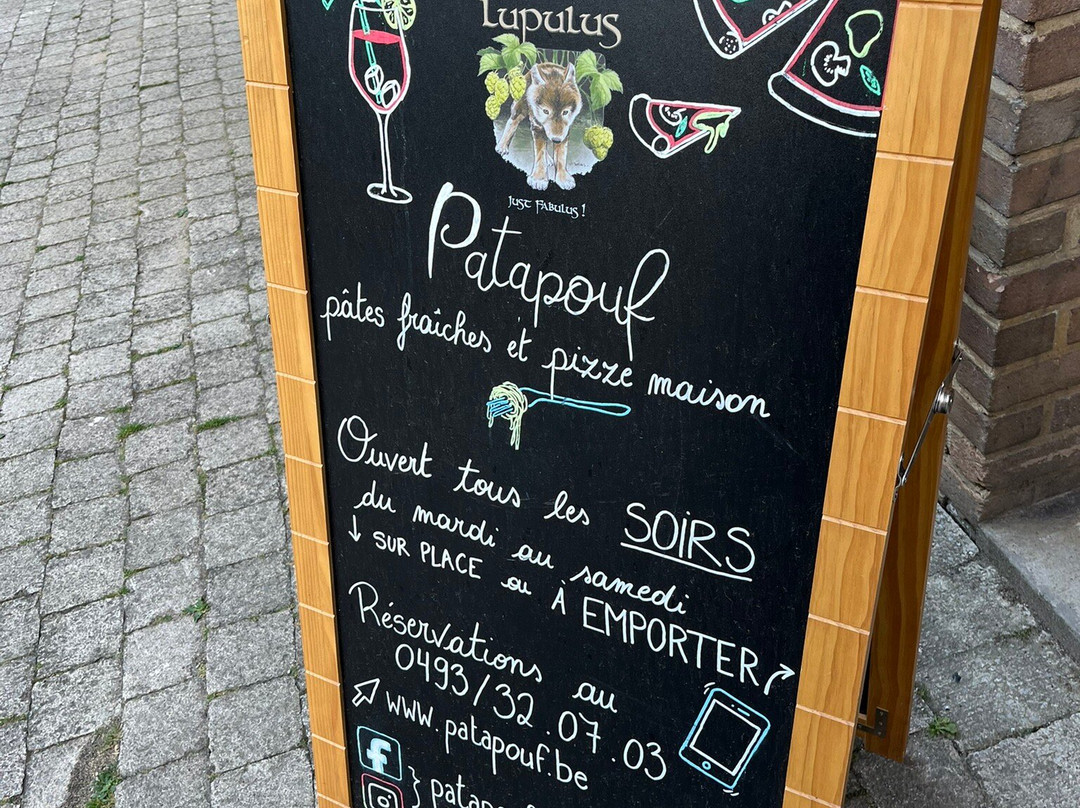 Lupulus
Just Fabulus !
Patapouf
pâtes fraîches et pizze maison
Ouvert tous les SOIRS
du mardi au samedi
↓ SUR PLACE ou À EMPORTER
Réservations au
0493/32.07.03
www.patapouf.be